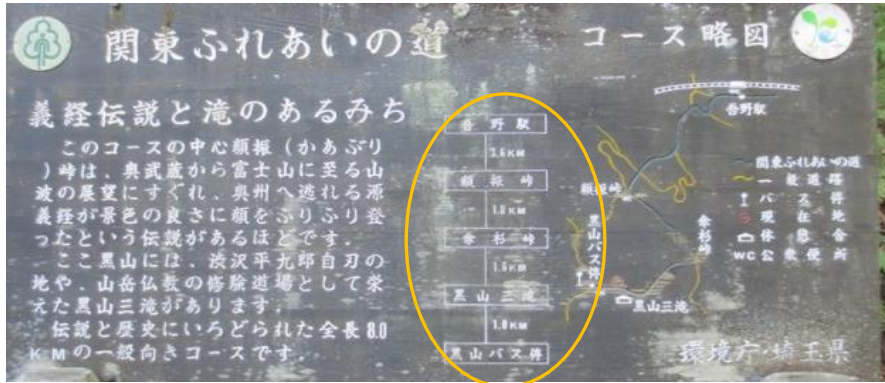 関東ふれあいの道
コース略図
義経伝説と滝のあるみち
このコースの中心顔振(かあぶり
)峠は、奥武蔵から富士山に至る山
波の展望にすぐれ、奥州へ逃れる源
義経が景色の良さに顔をふりふり登
ったという伝説があるほどです。
ここ黒山には、渋沢平九郎自刃の
地や、山岳仏教の修験道場として栄
えた黒山三滝があります。
伝説と歴史にいろどられた全長8.0
KMの一般向きコースです。
吾野駅
3.6KM
顔振峠
1.8KM
傘杉峠
1.6KM
黒山三滝
1.0KM
黒山バス停
吾野駅
顔振峠
傘杉峠
黒山バス停
黒山三滝
関東ふれあいの道
一般道路
バス停
現在地
休憩舎
WC公衆便所
環境庁・埼玉県